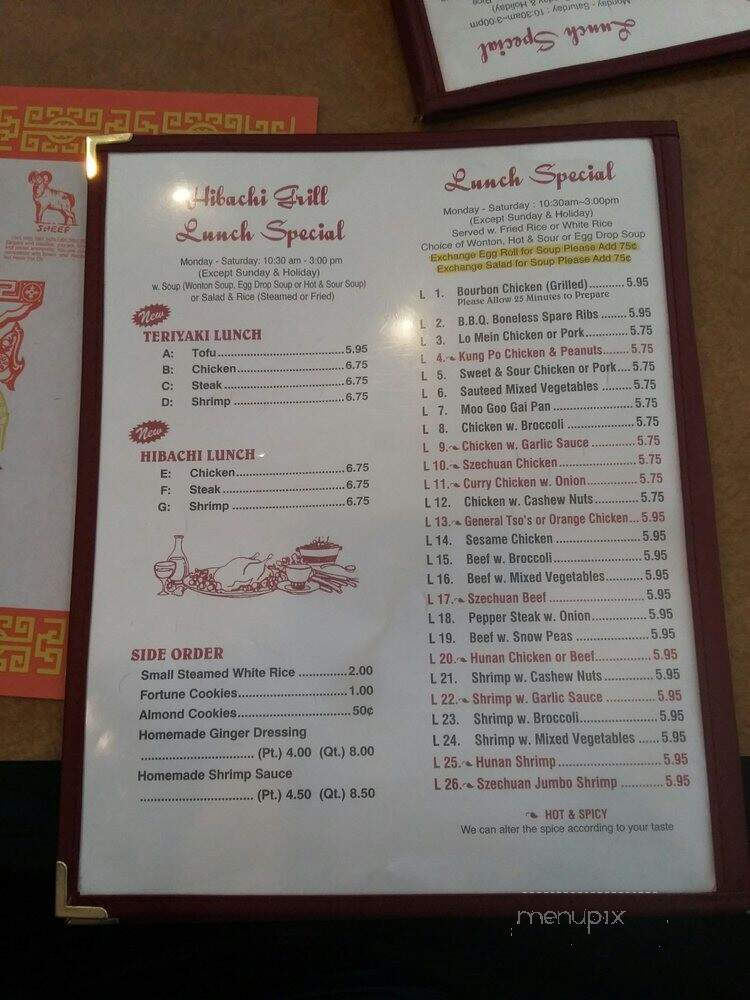 Lunch Special
Monday - Saturday : 10:30am~3:00pm
SHEEP
Hibachi Grill
Lunch Special
Monday - Saturday: 10:30 am - 3:00 pm
(Except Sunday & Holiday)
w. Soup (Wonton Soup, Egg Drop Soup or Hot & Sour Soup)
or Salad & Rice (Steamed or Fried)
New
TERIYAKI LUNCH
A: Tofu 5.95
B: Chicken 6.75
C: Steak 6.75
D: Shrimp 6.75
New
HIBACHI LUNCH
E: Chicken 6.75
F: Steak 6.75
G: Shrimp 6.75
SIDE ORDER
Small Steamed White Rice 2.00
Fortune Cookies 1.00
Almond Cookies 50¢
Homemade Ginger Dressing
(Pt.) 4.00 (Qt.) 8.00
Homemade Shrimp Sauce
(Pt.) 4.50 (Qt.) 8.50
Lunch Special
Monday - Saturday : 10:30am~3:00pm
(Except Sunday & Holiday)
Served w. Fried Rice or White Rice
Choice of Wonton, Hot & Sour or Egg Drop Soup
Exchange Egg Roll for Soup Please Add 75¢
Exchange Salad for Soup Please Add 75¢
L 1. Bourbon Chicken (Grilled) 5.95
Please Allow 25 Minutes to Prepare
L 2. B.B.Q. Boneless Spare Ribs 5.95
L 3. Lo Mein Chicken or Pork 5.75
L 4. Kung Po Chicken & Peanuts 5.75
L 5. Sweet & Sour Chicken or Pork 5.75
L 6. Sauteed Mixed Vegetables 5.75
L 7. Moo Goo Gai Pan 5.75
L 8. Chicken w. Broccoli 5.75
L 9. Chicken w. Garlic Sauce 5.75
L 10. Szechuan Chicken 5.75
L 11. Curry Chicken w. Onion 5.75
L 12. Chicken w. Cashew Nuts 5.75
L 13. General Tso's or Orange Chicken 5.95
L 14. Sesame Chicken 5.95
L 15. Beef w. Broccoli 5.95
L 16. Beef w. Mixed Vegetables 5.95
L 17. Szechuan Beef 5.95
L 18. Pepper Steak w. Onion 5.95
L 19. Beef w. Snow Peas 5.95
L 20. Hunan Chicken or Beef 5.95
L 21. Shrimp w. Cashew Nuts 5.95
L 22. Shrimp w. Garlic Sauce 5.95
L 23. Shrimp w. Broccoli 5.95
L 24. Shrimp w. Mixed Vegetables 5.95
L 25. Hunan Shrimp 5.95
L 26. Szechuan Jumbo Shrimp 5.95
HOT & SPICY
We can alter the spice according to your taste
menupix